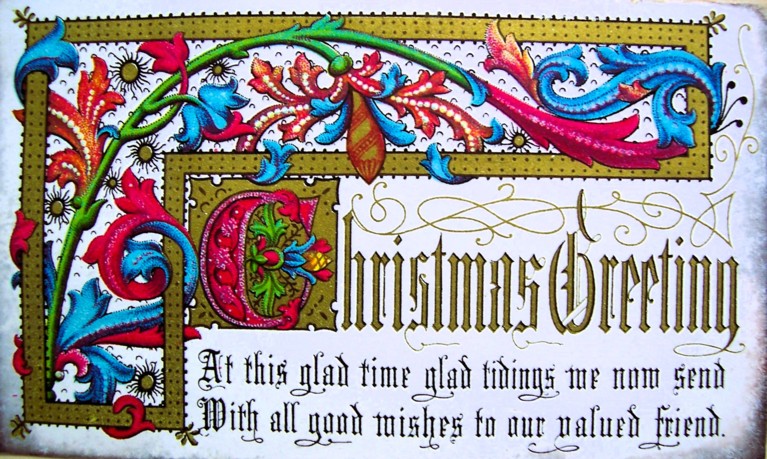 Christmas Greeting
At this glad time glad tidings we now send
With all good wishes to our valued friend.